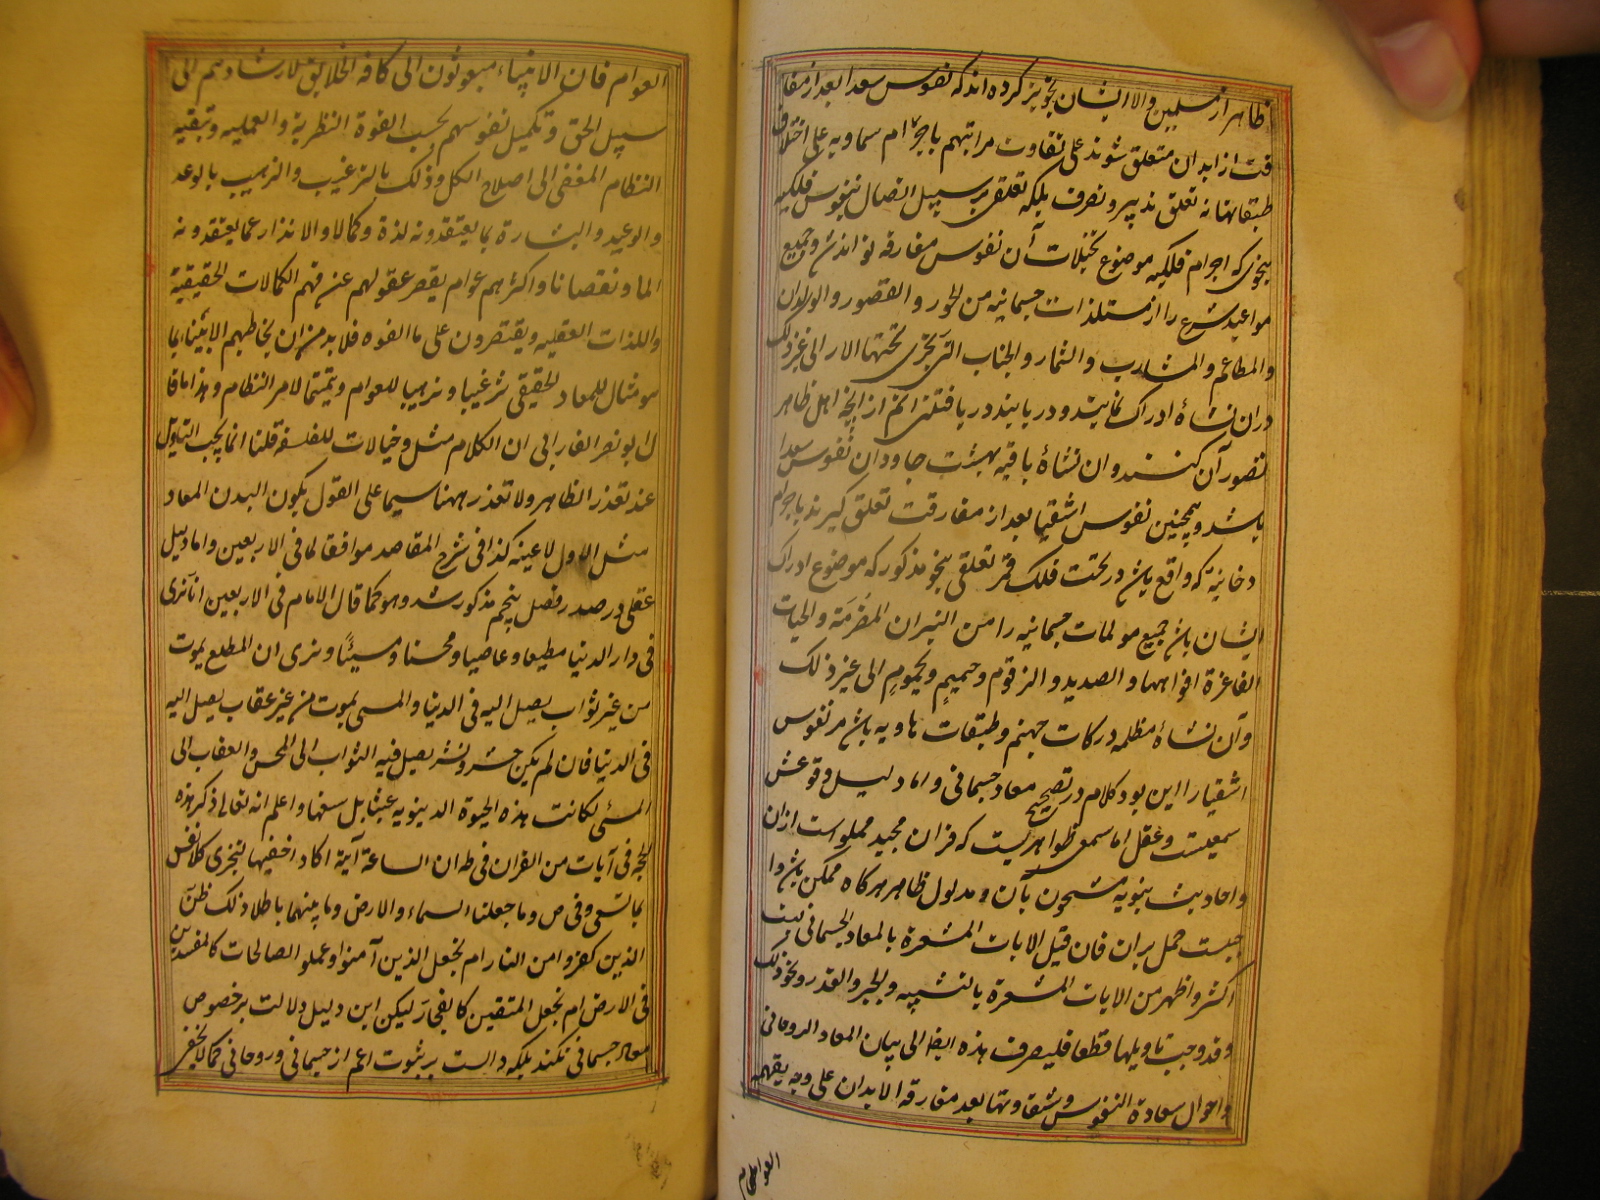 ظاهر از مسلمین والا ایشان تجویز کرده اند که نفوس سعدا بعد از مفا
قت از ابدان متعلق شوند علی تفاوت مراتبهم باجرام سماویه علی اختلاف
طبقاتها نه تعلق تدبیر و تصرف بلکه تعلقی بر سبیل اتصال بنفوس فلکیه
بنحوی که اجرام فلکیه موضوع تخیلات آن نفوس مفارقه تواند شد و جمیع
مواعید شرع را از مستلذات جسمانیه من الحور والقصور والولدان
والمطاعم والمشارب والثمار والجنات التی تجری تحتها الانهار الی غیر ذلک
در ان نشاۀ ادراک نمایند و دریابند دریافتنی اتم از انچه اهل ظاهر
تصور آن کنند و ان نشاۀ باقیه بهشت جاودان نفوس سعدا
باشد و همچنین نفوس اشقیا بعد از مفارقت تعلق گیرند باجرام
دخانیه که واقع باشد در تحت فلک قمر تعلقی بنحو مذکور که موضوع ادراک
ایشان باشد جمیع مولمات جسمانیه را من النیران المضرمة والحیات
الفاغرة افواهها والصدید والزقوم وحمیم ویحموم الی غیر ذلک
و آن نشاۀ مظلمه درکات جهنم و طبقات هاویه باشد مر نفوس
اشقیا را این بود کلام در تصحیح معاد جسمانی و اما دلیل وقوعش
سمعیست و عقلی اما سمعی ظواهریست که قران مجید مملو است ازان
و احادیث نبویه مشحون بآن و مدلول ظاهر هرگاه ممکن باشد وا
جبست حمل بران فان قیل الایات المشعرة بالمعاد الجسمانی لیست
اکثر واظهر من الایات المشعرة بالتشبیه والجبر والقدر ونحو ذلک
وقد وجب تاویلها قطعا فلیصرف هذه ایضا الی بیان المعاد الروحانی
واحوال سعادة النفوس وشقاوتها بعد مفارقة الابدان علی وجه یفهمه
العوام
العوام فان الانبیاء مبعوثون الی کافه الخلایق لارشادهم الی
سبیل الحق وتکمیل نفوسهم بحسب القوة النظریة والعملیه وتبقیه
النظام المفضی الی اصلاح الکل وذلک بالترغیب والترهیب بالوعد
والوعید والبشارة بما یعتقدونه لذة وکمالا والانذار عما یعتقدونه
الما ونقصانا واکثرهم عوام یقصر عقولهم عن فهم الکمالات الحقیقیة
واللذات العقلیه ویقتصرون علی ما الفوه فلا بد من ان یخاطبهم الانبیا بما
هو مثال للمعاد الحقیقی ترغیبا وترهیبا للعوام وتتمیما لامر النظام وهذا ما قا
ل ابو نصر الفارابی ان الکلام مثل وخیالات للفلسفة قلنا انما یجب التاویل
عند تعذر الظاهر ولا تعذر ههنا سیما علی القول بکون البدن المعاد
مثل الاول لا عینه کذا فی شرح المقاصد موافقا لما فی الاربعین واما دلیل
عقلی در صدر فصل پنجم مذکور شد وهو کما قال الامام فی الاربعین انا نری
فی دار الدنیا مطیعا وعاصیا ومحسنا ومسیئا ونری ان المطیع یموت
من غیر ثواب یصل الیه فی الدنیا والمسی یموت من غیر عقاب یصل الیه
فی الدنیا فان لم یکن حشر ونشر یصل فیه الثواب الی المحسن والعقاب الی
المسئ لکانت هذه الحیوة الدنیویه عبثا بل سفها واعلم انه تعالی ذکر هذه
الحجه فی آیات من القران فی طه ان الساعة آتیة اکاد اخفیها لتجزی کل نفس
بما تسعی وفی ص وما جعلنا السماء والارض وما بینهما باطلا ذلک ظن
الذین کفروا من النار ام نجعل الذین آمنوا وعملوا الصالحات کالمفسدین
فی الارض ام نجعل المتقین کالفجار لیکن این دلیل دلالت بر خصوص
معاد جسمانی نکند بلکه دالست بر ثبوت اعم از جسمانی و روحانی کما لا یخفی